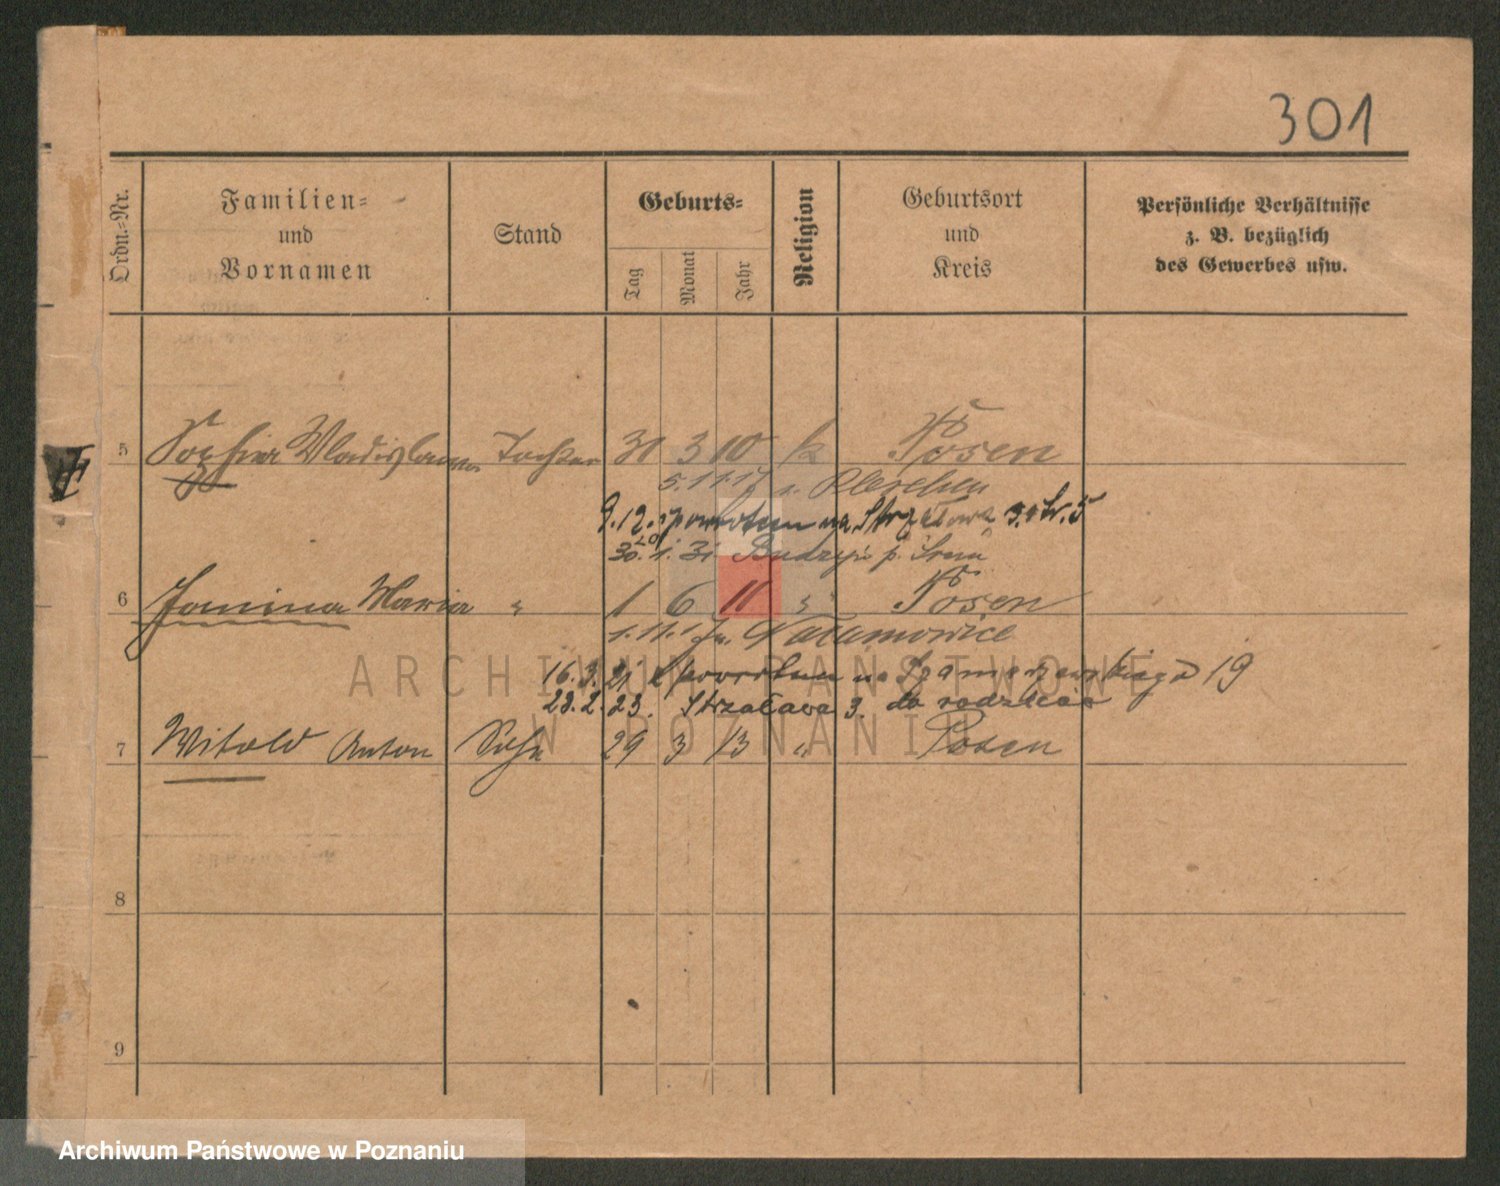 301
Ordn.-Nr.
Familien-
und
Vornamen
Stand
Geburts-
Tag
Monat
Jahr
Religion
Geburtsort
und
Kreis
Persönliche Verhältnisse
z. B. bezüglich
des Gewerbes usw.
5 Sophia Wladislawa Tochter 30 3 10 k Posen
5.11.17 n. Pleschen
9.12. spowrotem na Strzałowa 3. Tr. 5
30.1.21 p. Śrem
6 Janina Maria " 1 6 11 " Posen
1.11.17 n.
16.3.21 spowrotem na Szamarzewskiego 19
23.2.23. Strzałowa 3. do rodziców
7 Witold Anton Sohn 29 3 13 " Posen
8
9
ARCHIWUM PAŃSTWOWE
W POZNANIU
Archiwum Państwowe w Poznaniu